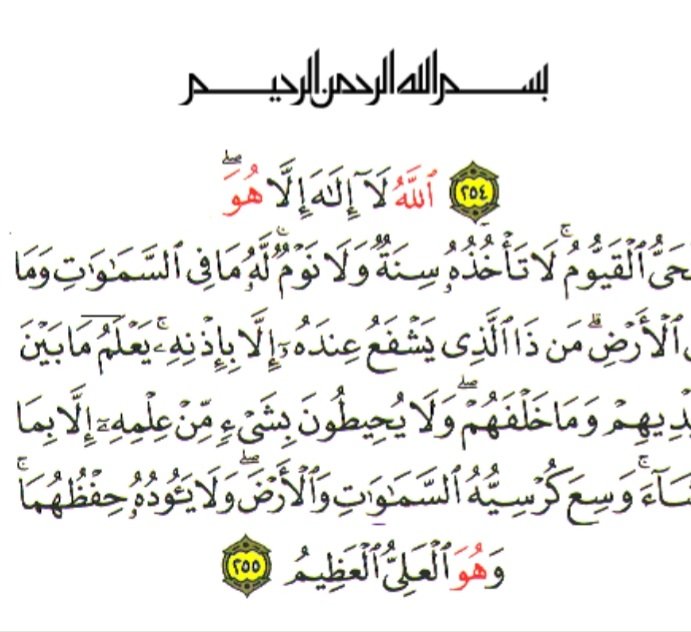 بسم الله الرحمن الرحيم
٢٥٤ ٱللَّهُ لَآ إِلَٰهَ إِلَّا هُوَ ۖ
حَىُّ ٱلْقَيُّومُ ۚ لَا تَأْخُذُهُۥ سِنَةٌ وَلَا نَوْمٌ ۚ لَّهُۥ مَا فِى ٱلسَّمَٰوَٰتِ وَمَا
ٱلْأَرْضِ ۗ مَن ذَا ٱلَّذِى يَشْفَعُ عِندَهُۥٓ إِلَّا بِإِذْنِهِۦ ۚ يَعْلَمُ مَا بَيْنَ
دِيهِمْ وَمَا خَلْفَهُمْ ۖ وَلَا يُحِيطُونَ بِشَىْءٍ مِّنْ عِلْمِهِۦٓ إِلَّا بِمَا
شَآءَ ۚ وَسِعَ كُرْسِيُّهُ ٱلسَّمَٰوَٰتِ وَٱلْأَرْضَ ۖ وَلَا يَـُٔودُهُۥ حِفْظُهُمَا ۚ
وَهُوَ ٱلْعَلِىُّ ٱلْعَظِيمُ ٢٥٥